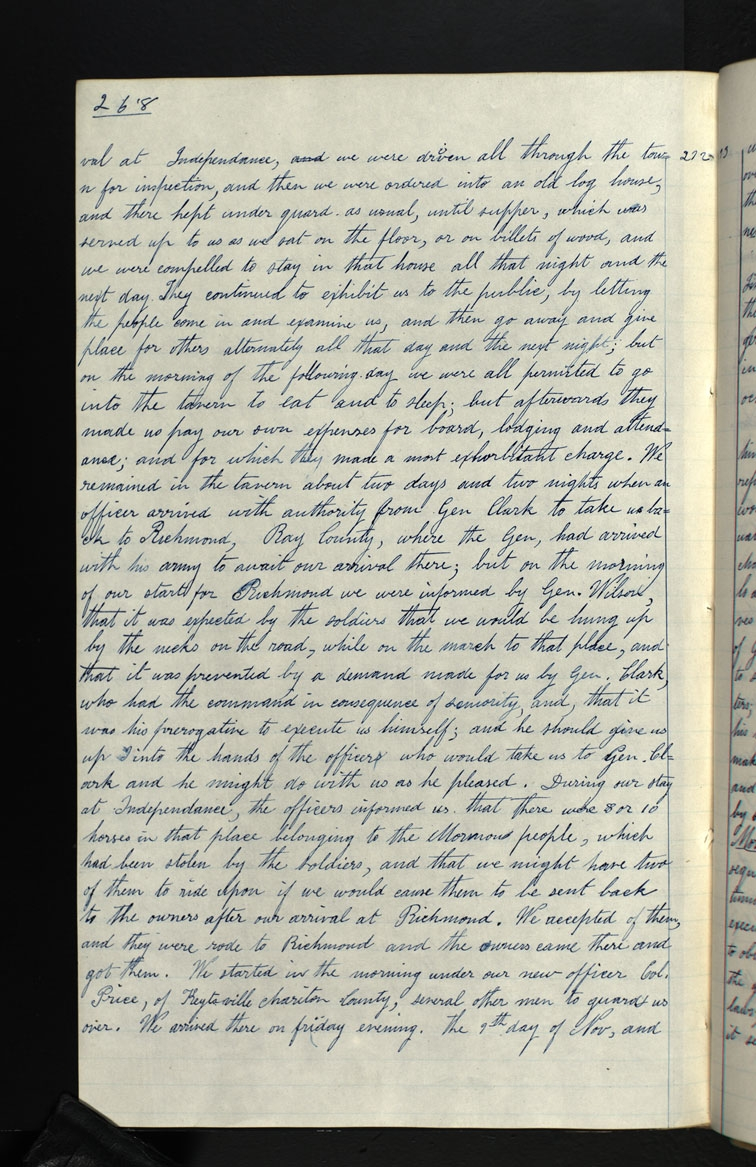 268
val at Independance, and we were driven all through the tow=
n for inspection, and then we were ordered into an old log house,
and there kept under guard. as usual, until supper, which was
served up to us as we sat on the floor, or on billets of wood, and
we were compelled to stay in that house all that night and the
next day. They continued to exhibit us to the public, by letting
the people come in and examine us, and then go away and give
place for others alternately all that day and the next night; but
on the morning of the following day we were all permitted to go
into the tavern to eat and to sleep; but afterwards they
made us pay our own expenses for board, lodging and attend=
ance; and for which they made a most exhorbitant charge. We
remained in the tavern about two days and two nights when an
officer arrived with authority from Gen Clark to take us ba=
ck to Richmond, Ray County, where the Gen, had arrived
with his army to await our arrival there; but on the morning
of our start for Richmond we were informed by Gen. Wilson,
that it was expected by the soldiers that we would be hung up
by the necks on the road, while on the march to that place, and
that it was prevented by a demand made for us by Gen. Clark,
who had the command in consequence of seniority, and, that it
was his prerogative to execute us himself; and he should give us
up into the hands of the officers who would take us to Gen. Cl=
ark and he might do with us as he pleased. During our stay
at Independance, the officers informed us. that there were 8 or 10
horses in that place belonging to the Mormons people, which
had been stolen by the soldiers, and that we might have two
of them to ride upon if we would cause them to be sent back
to the owners after our arrival at Richmond. We accepted of them,
and they were rode to Richmond and the owners came there and
got them. We started in the morning under our new officer Col.
Price, of Keytsville Chariton County, several other men to guard us
over. We arrived there on friday evening. the 9th day of Nov, and
272